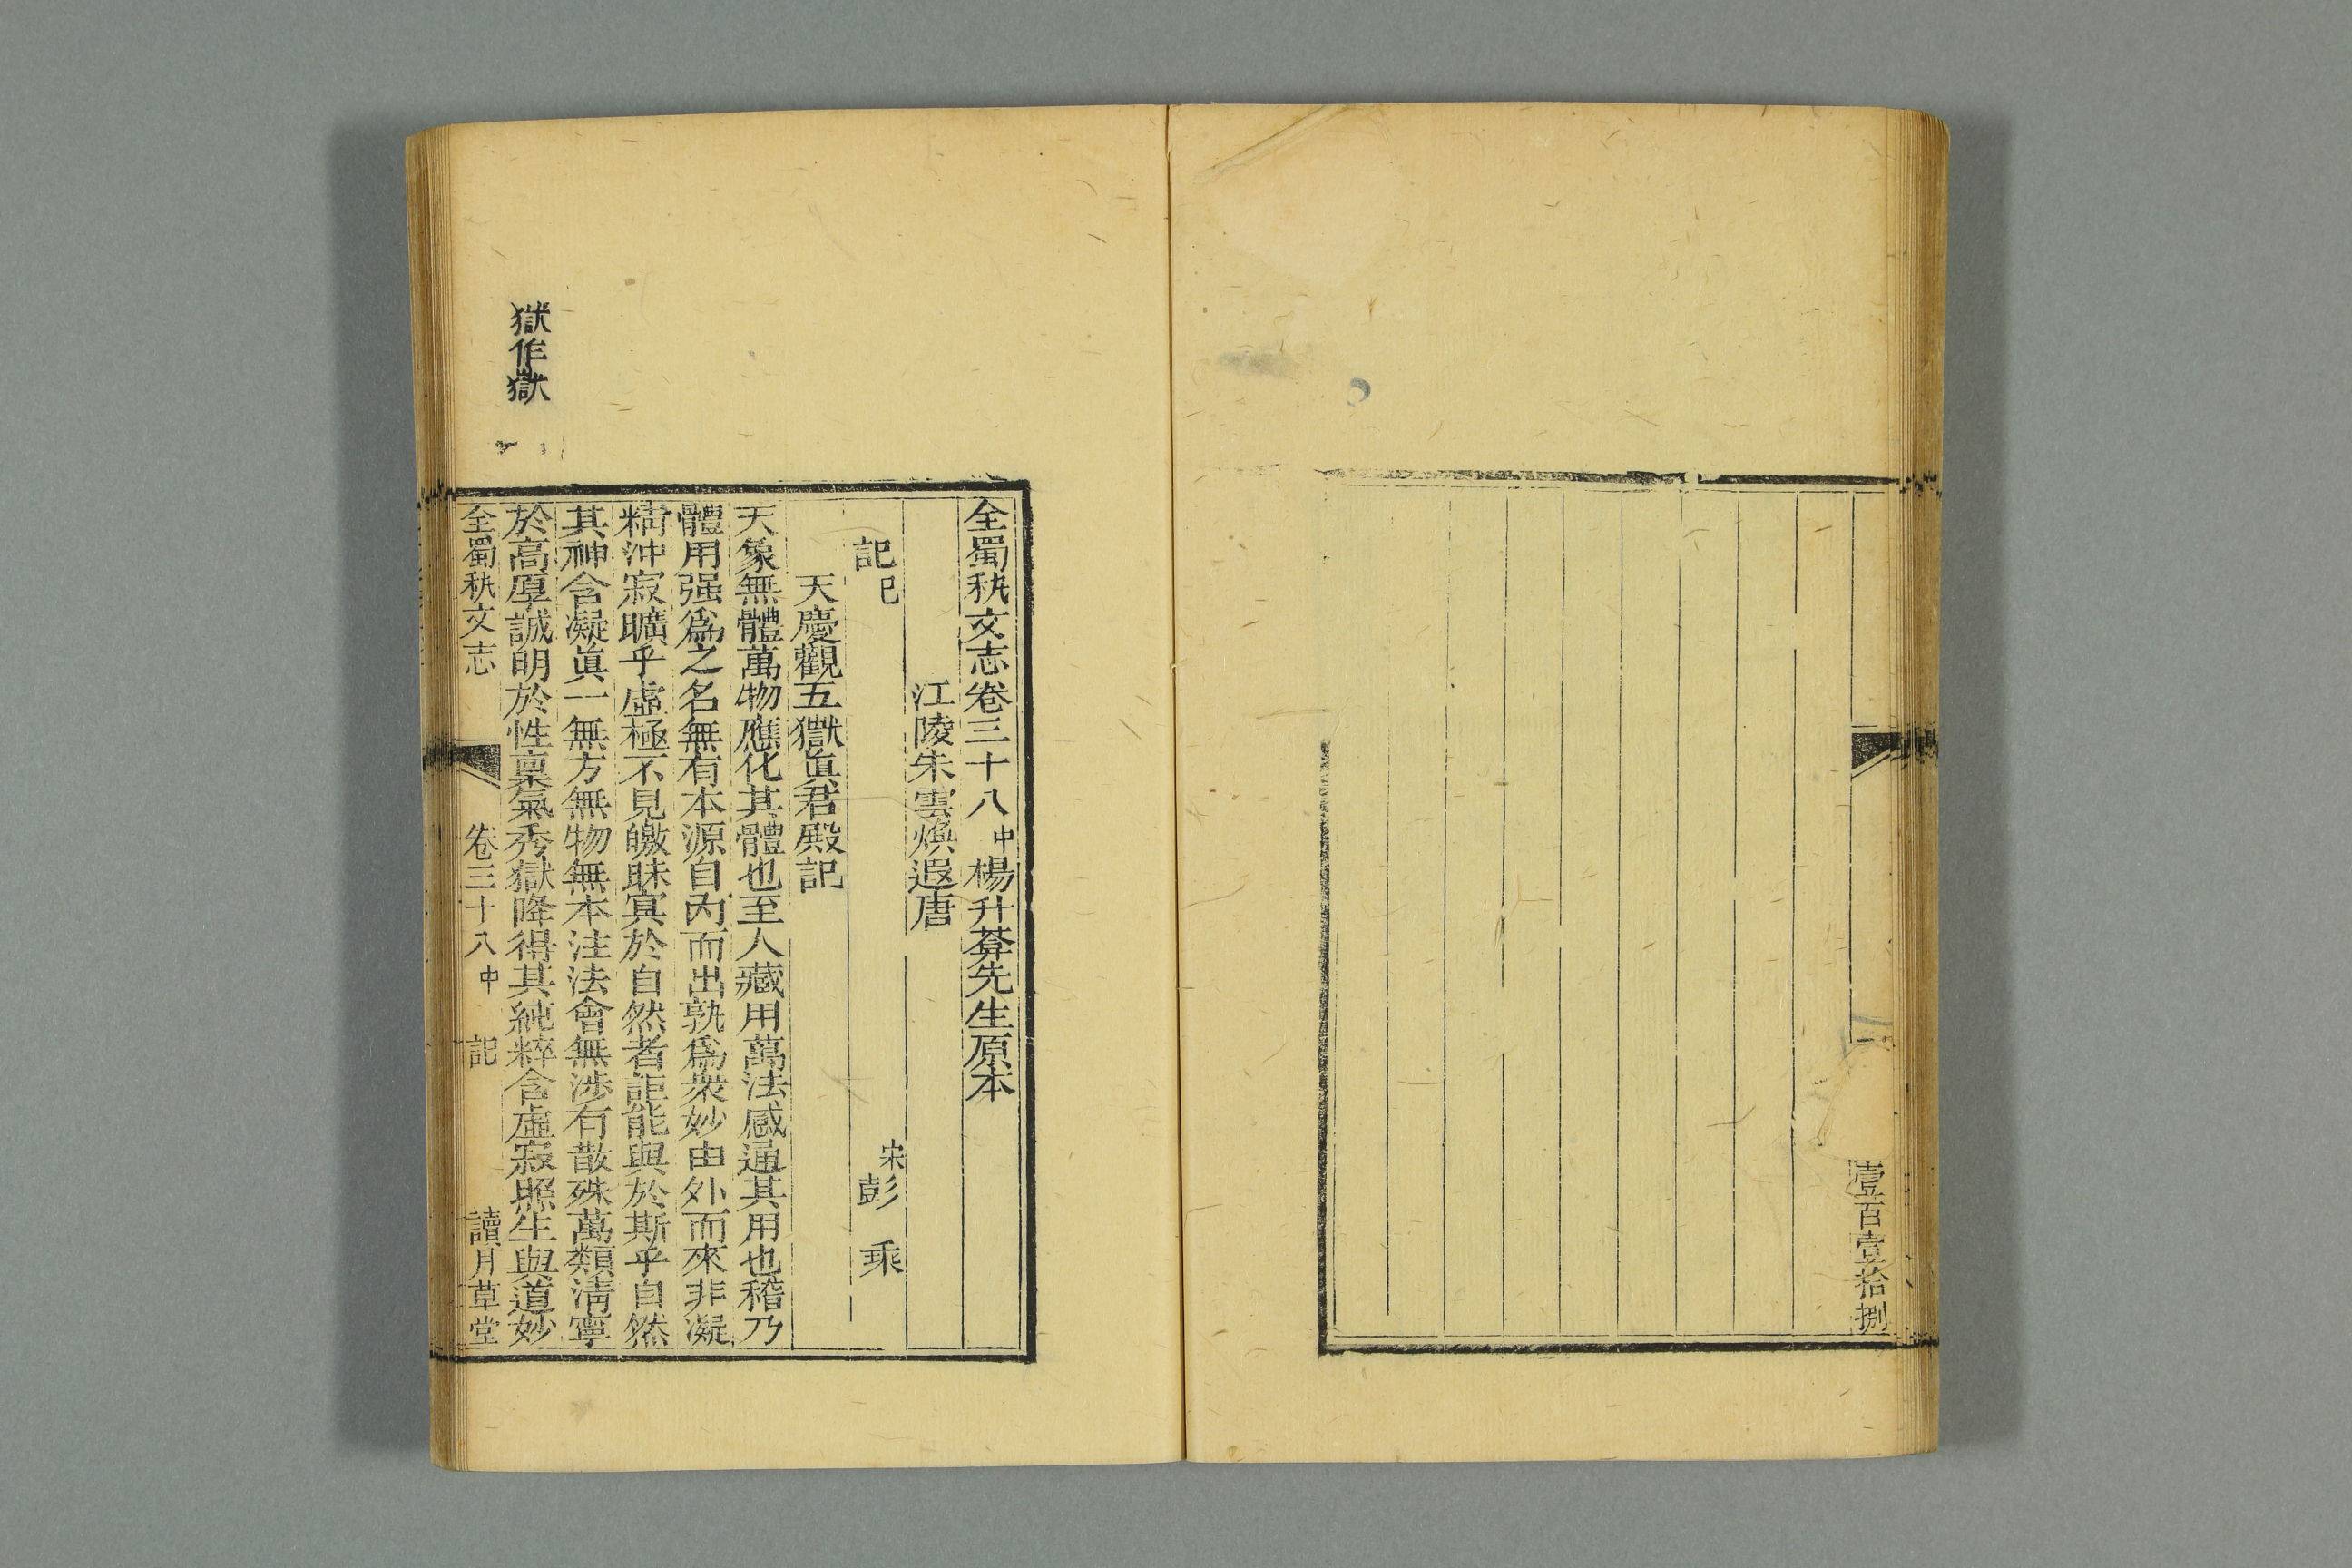 壹百壹拾捌
全蜀秇文志卷三十八中楊升菴先生原本
江陵朱雲煥遐唐
記己
宋彭乘
天慶觀五嶽眞君殿記
天象無體萬物應化其體也至人藏用萬法感通其用也稽乃
體用强爲之名無有本源自內而出孰爲衆妙由外而來非凝
精沖寂曠乎虛極不見皦昧冥於自然者詎能與於斯乎自然
其神含凝眞一無方無物無本注法會無涉有散殊萬類淸寧
於高厚誠明於性稟氣秀獄降得其純粹含虛寂照生與道妙
獄作嶽
全蜀秇文志 卷三十八中 記 讀月草堂